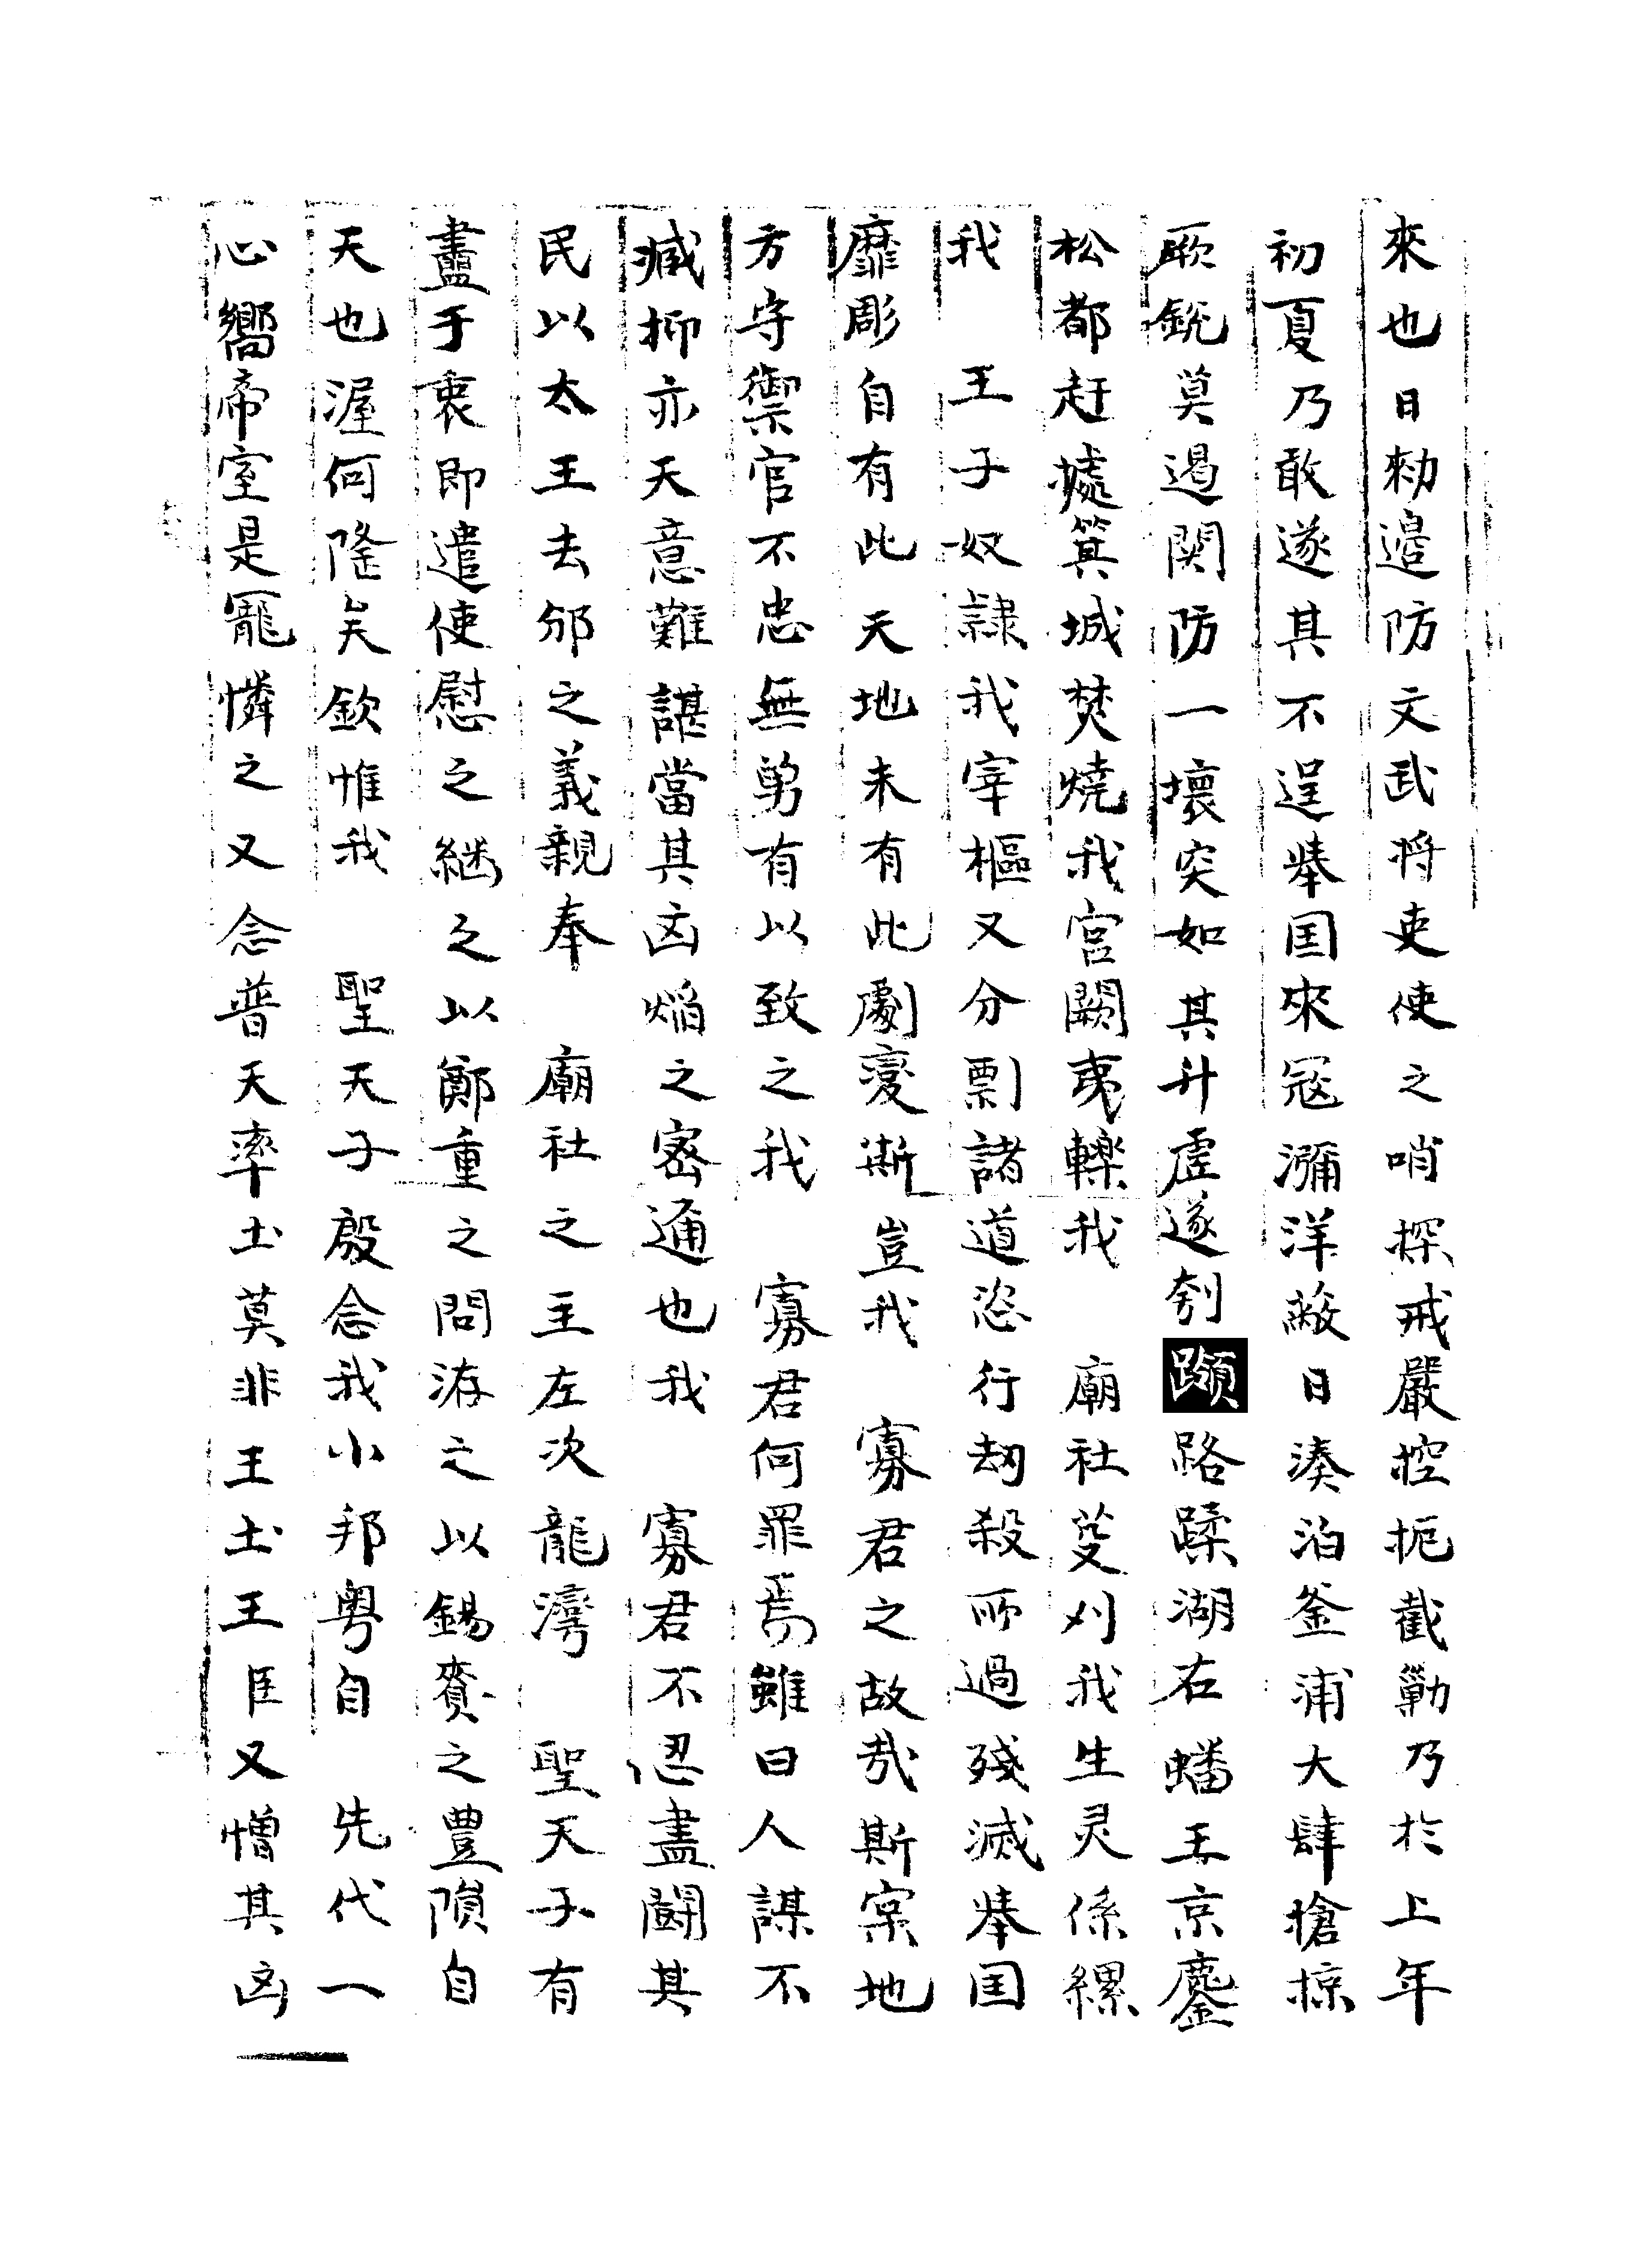 來也日勑邉防文武將吏使之哨探戒嚴控扼截勦乃於上年
初夏乃敢遂其不逞擧国來冦瀰洋蔽日湊泊釜浦大肆搶掠
厥銳莫遏関防一壞突如其升虗遂刳躓路蹂湖右蟠王京鏖
松都赶㨿箕城焚燒我宮闕夷轢我 廟社芟刈我生灵係縲
我 王子奴隷我宰樞又分剽諸道恣行刧殺所過殘滅擧国
靡彫自有此天地未有此劇變斯豈我 寡君之故㢤斯寀地
方守禦官不忠無勇有以致之我 寡君何罪焉雖曰人謀不
臧抑亦天意難諶當其凶焰之密通也我 寡君不忍盡鬪其
民以太王去邠之義親奉 廟社之主左次龍灣 聖天子有
衋于衷即遣使慰之継之以鄭重之問洊之以錫賚之豊隕自
天也渥何隆矣欽惟我 聖天子殷念我小邦粤自 先代一
心嚮帝室是寵憐之又念普天率土莫非王土王臣又憎其凶